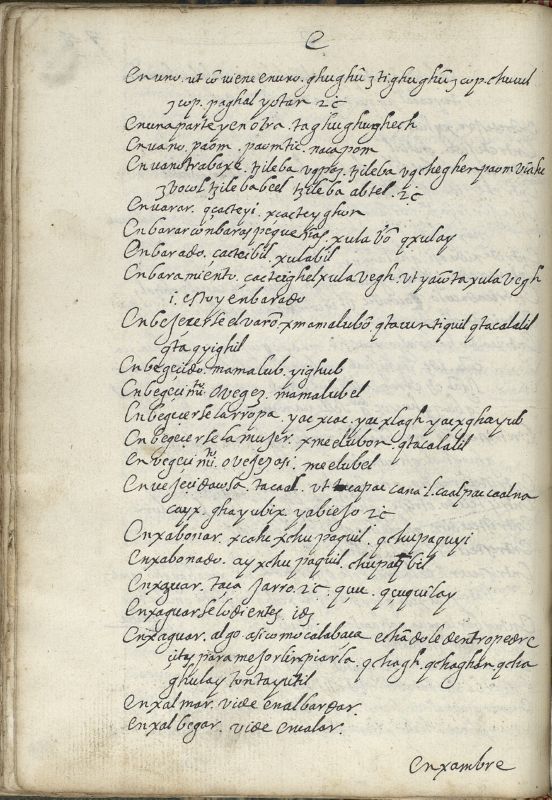 e
En uno. ut cō viene en uno. ghughū ʒ ti. ghughū ʒ cop. chuuul
ʒ cop. paghal yotar ꝛc̄
En una parte y en otra. taghughughech
En uano. paom. paomtic. nacapom
En uano trabaxe. tzileba vqpoz. tzileba vqcheghen paom
ʒ vocol tzileba beel tzileba abtel. ꝛc̄
En uarar. qcacteyi. xcacteyghon
En barar con baras pequeñas. xula qxulay
En barado. cacteibil. xulabil
En baramiento. cacteighel xulavegh. vt yaōta xulavegh
i. estoy en barado
En beJecerse el varō. xmamalubō. qtacuntiquil qtacalalil
qtaqyighil
En begeçido. mamalub. yighub
En begeçimiᵗᵘ. o vegez. mamalubel
En begecerse la rropa. yacxcac. yacxlagh. yacxghayub
En begecerse la muJer. xmeelubon. qtacalalil
En vegeçimiᵗᵘ. o veJez asi. meelubel
En veJeçida cosa. tacaal. vt tacapac cana .l. caalpac caalna
caxx. ghayubix yabieJo ꝛc̄
En xabonar. xcahc xchupaquil. qchupaquyi
En xabonado. ay xchupaquil. chupaqbil
En xaguar. taça Jarro. ꝛc̄. quc. qcuquilay
En xaguarse lō dientez. idz
En xaguar. algo asi como calabaca echādole dentro pedre
çitas para meJor limpiarla. qchagh. qchaghan. qcha
ghulay tontayutil
En xalmar. vide en albardar.
En xalbegar. vide en calar.
En xambre